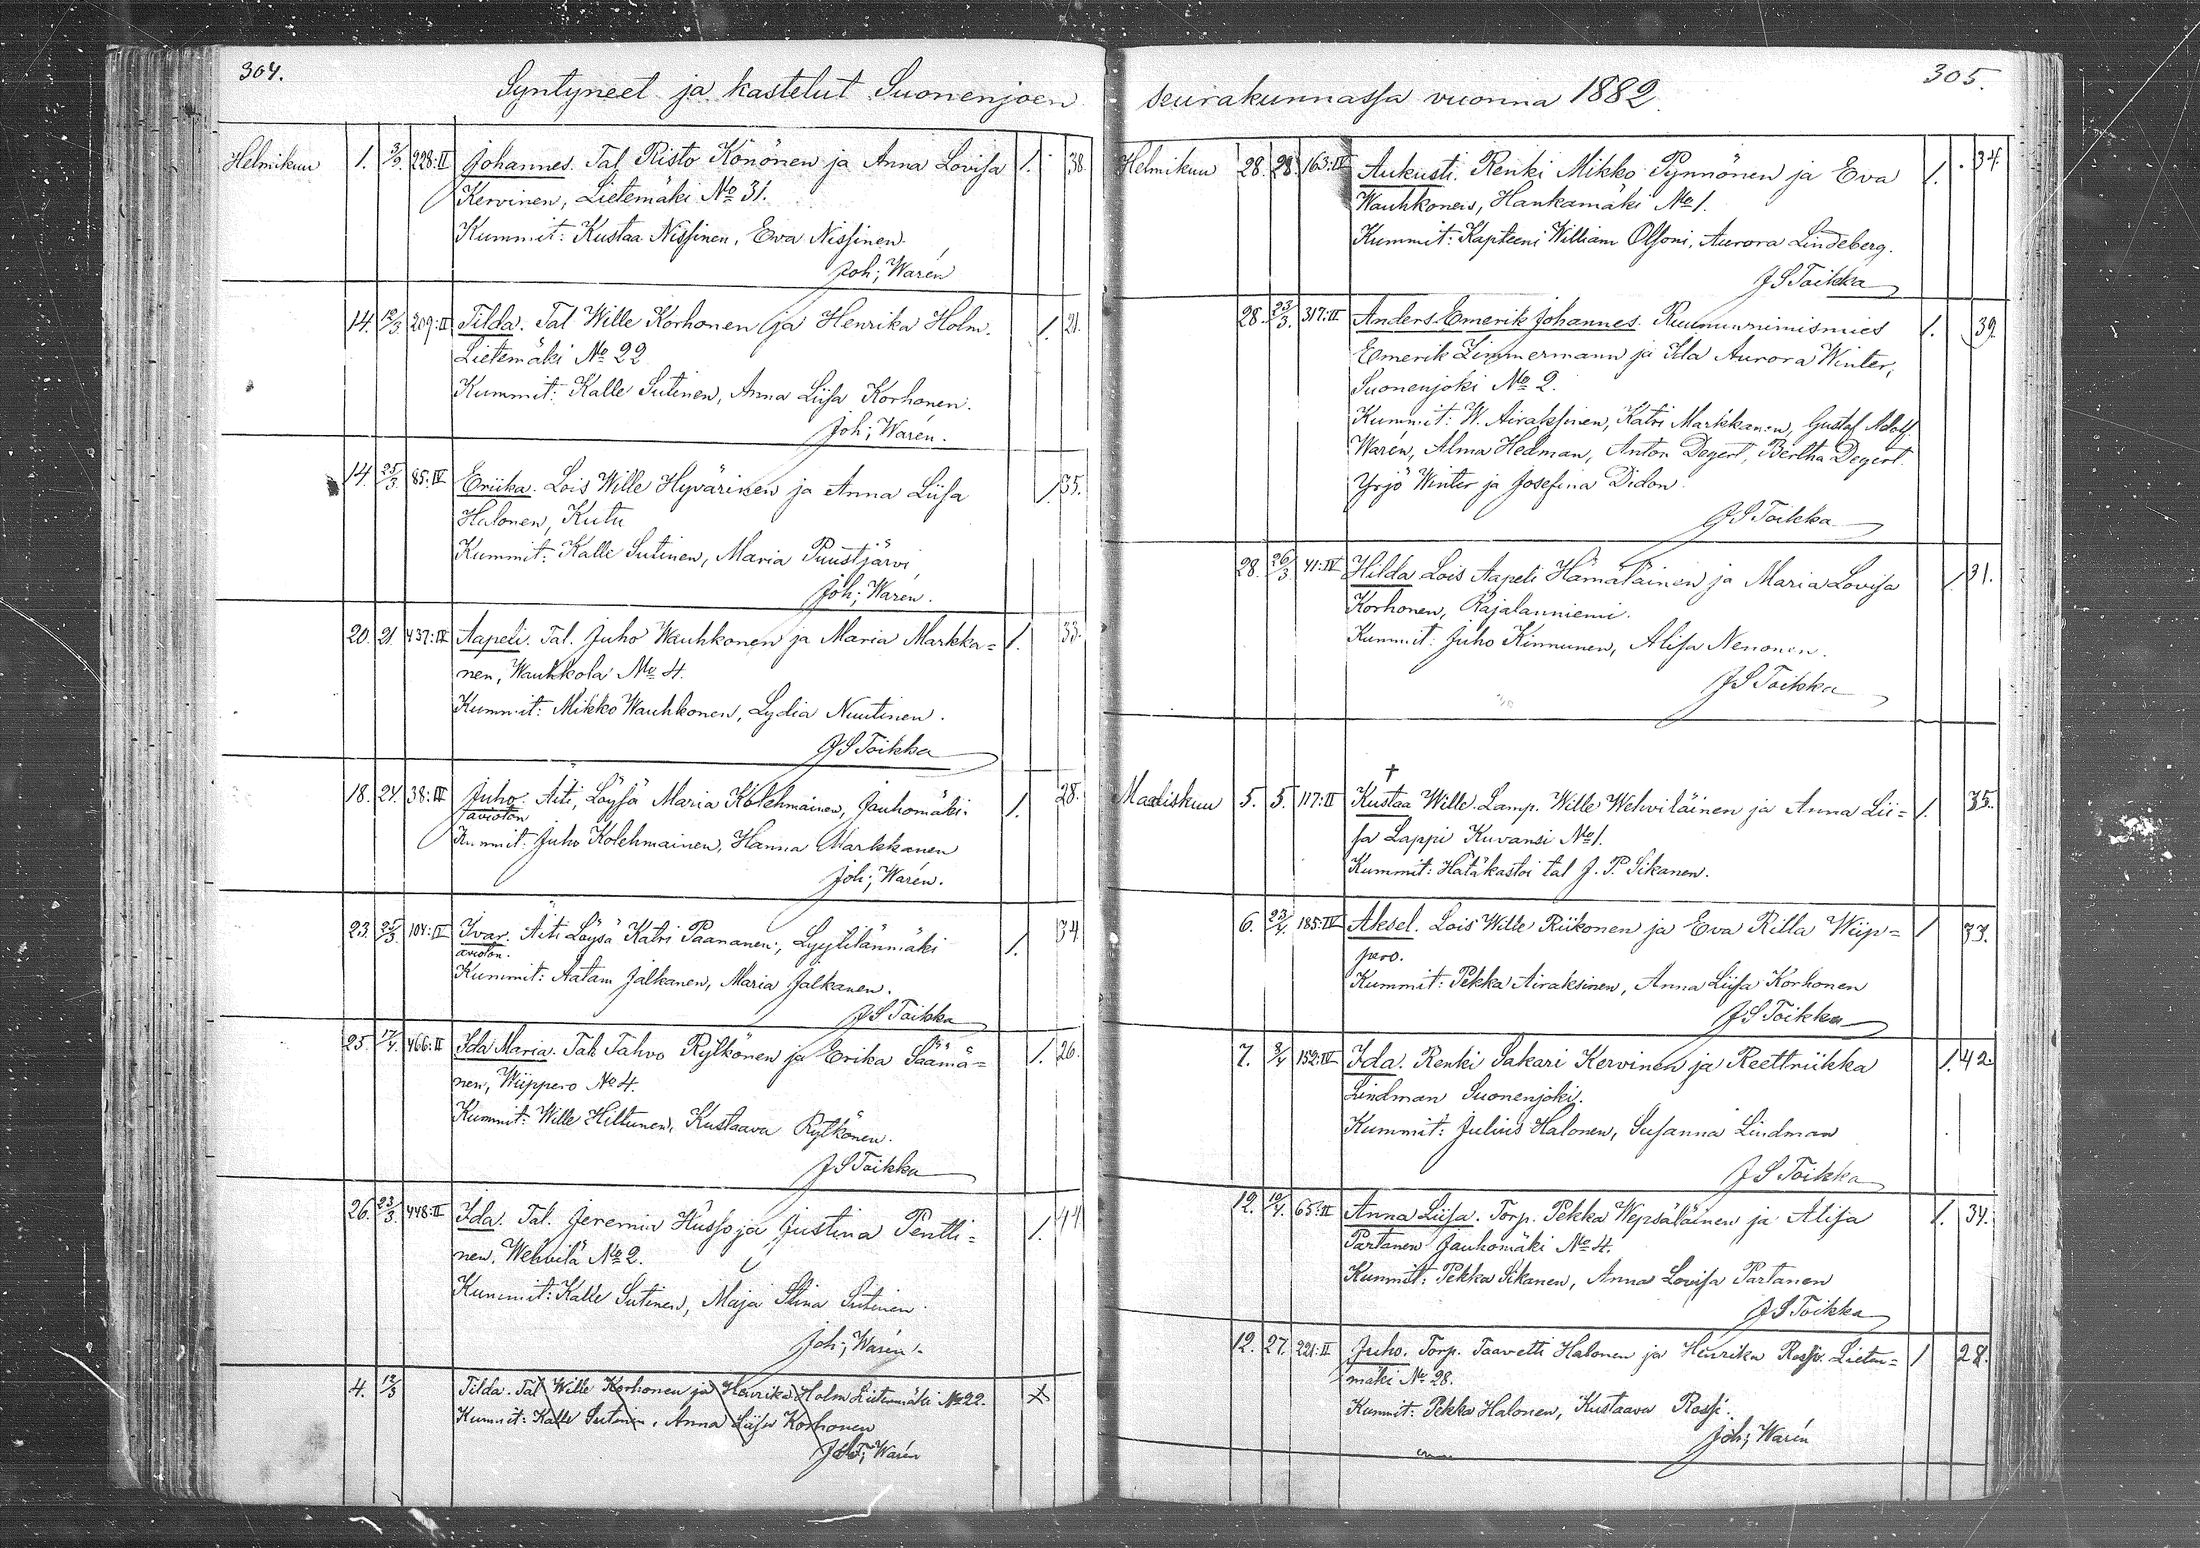 304.
Syntyneet ja kastetut Suonenjoen
Helmikuu 1. 3/3 228:II Johannes. Tal Risto Könönen ja Anna Lovisa 1. 38
Kervinen, Lietemäki No 31.
Kummit: Kustaa Nissinen, Eva Nissinen.
Joh; Warén
14. 12/3 209:II Tilda. Tal Wille Korhonen ja Henrika Holm. 1. 21.
Lietemäki No 22
Kummit: Kalle Sutinen, Anna Liisa Korhonen.
Joh; Warén.
14. 25/3 85:IV Eriika. Lois Wille Hyvärinen ja Anna Liisa 1. 35.
Halonen, Kutu
Kummit: Kalle Sutinen, Maria Puustjärvi
Joh; Warén.
20. 21. 437:IV Aapeli. Tal. Juho Wauhkonen ja Maria Markka= 1. 33.
nen, Wauhkola No 4.
Kummit: Mikko Wauhkonen, Lydia Nuutinen.
J S Toikka
18. 24. 38:IV Juho. Äiti, Löysä Maria Kolehmainen, Jauhomäki. 1. 28.
avioton
Kummit: Juho Kolehmainen, Hanna Markkanen
Joh; Warén.
23. 25/3 104:IV Ivar. Äiti Löysä Katri Paananen, Lyytilänmäki 1. 34
avioton.
Kummit: Aatam Jalkanen, Maria Jalkanen.
J S Toikka
25. 17/4 466:II Ida Maria. Tal. Tahvo Rytkönen ja Erika Säämä= 1. 26.
nen, Wiippero No 4.
Kummit: Wille Hiltunen, Kustaava Rytkönen.
J S Toikka
26. 23/3 448:II Ida. Tal. Jeremia Husso ja Justina Pentti= 1. 44
nen, Wehvilä No 2.
Kummit: Kalle Sutinen, Maja Stina Sutinen.
Joh; Warén.
4. 12/3 Tilda. Tal Wille Korhonen ja Henrika Holm Lietemäki No 22.
Kummit: Kalle Sutinen, Anna Liisa Korhonen
Joh; Warén
305.
seurakunnassa vuonna 1882.
Helmikuu 28. 28. 163:IV Aukusti. Renki Mikko Pynnönen ja Eva 1. 34.
Wauhkonen, Hankamäki No 1.
Kummit: Kapteeni William Olsoni, Aurora Lindeberg.
J S Toikka
28. 23/3 317:II Anders Emerik Johannes. Ruununnimismies 1. 39.
Emerik Zimmermann ja Ida Aurora Winter,
Suonenjoki No 2.
Kummit: W. Airaksinen, Katri Markkanen, Gustaf Adolf
Warén, Alma Hedman, Anton Degert, Bertha Degert.
Yrjö Winter ja Josefina Didon.
J S Toikka
28. 26/3 41:IV Hilda Lois Aapeli Hämäläinen ja Maria Lovisa 1. 31.
Korhonen, Rajalanniemi.
Kummit: Juho Kinnunen, Alisa Nenonen.
J S Toikka
Maaliskuu 5. 5. 117:II † Kustaa Wille. Lamp. Wille Wehviläinen ja Anna Lii= 1. 35.
sa Lappi Kuvansi No 1.
Kummit: Hätäkastoi tal J. P. Sikanen.
6. 23/4 185:IV Aksel. Lois Wille Riikonen ja Eva Rilla Wiip= 1 33.
pero.
Kummit: Pekka Airaksinen, Anna Liisa Korhonen
J S Toikka
7. 8/4 152:IV Ida. Renki Sakari Kervinen ja Reettriikka 1. 42.
Lindman Suonenjoki.
Kummit: Julius Halonen, Susanna Lindman
J S Toikka
12. 10/4 65:II Anna Liisa. Torp. Pekka Wepsäläinen ja Alisa 1. 34.
Partanen Jauhomäki No 4.
Kummit: Pekka Sikanen, Anna Lovisa Partanen
J S Toikka
12. 27. 221:II Juho. Torp. Taavetti Halonen ja Henrika Rossi. Liete= 1 28.
mäki No 28.
Kummit: Pekka Halonen, Kustaava Rossi.
Joh; Warén